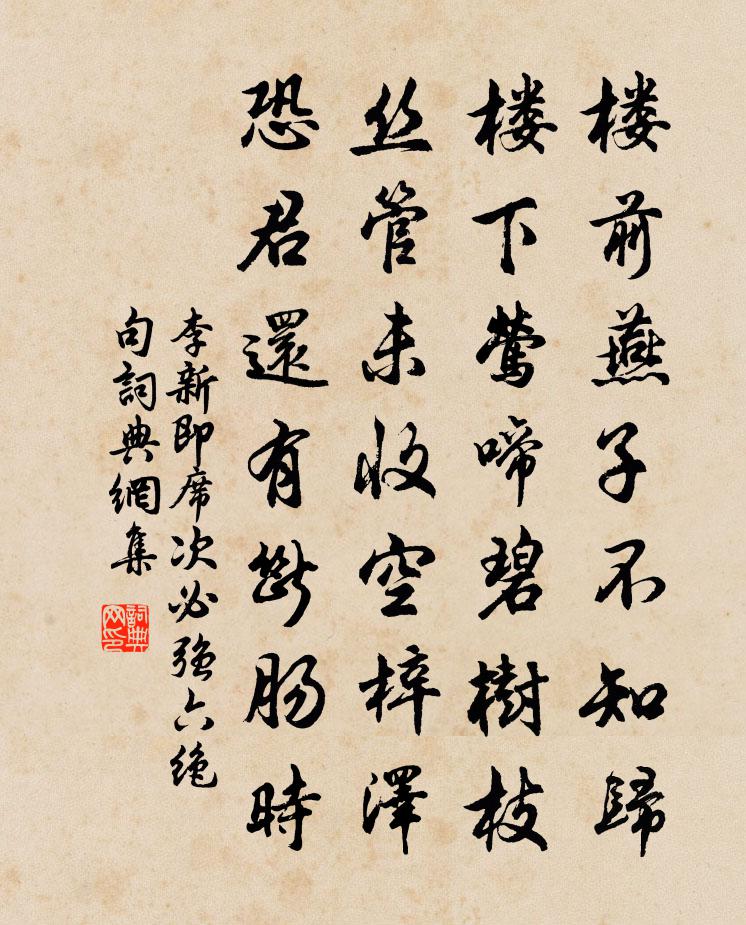 楼前燕子不知歸
楼下鶯啼碧樹枝
丝管未收空梓澤
恐君還有断腸時
李新即席次必强六绝
句詞典網集
詞典网印